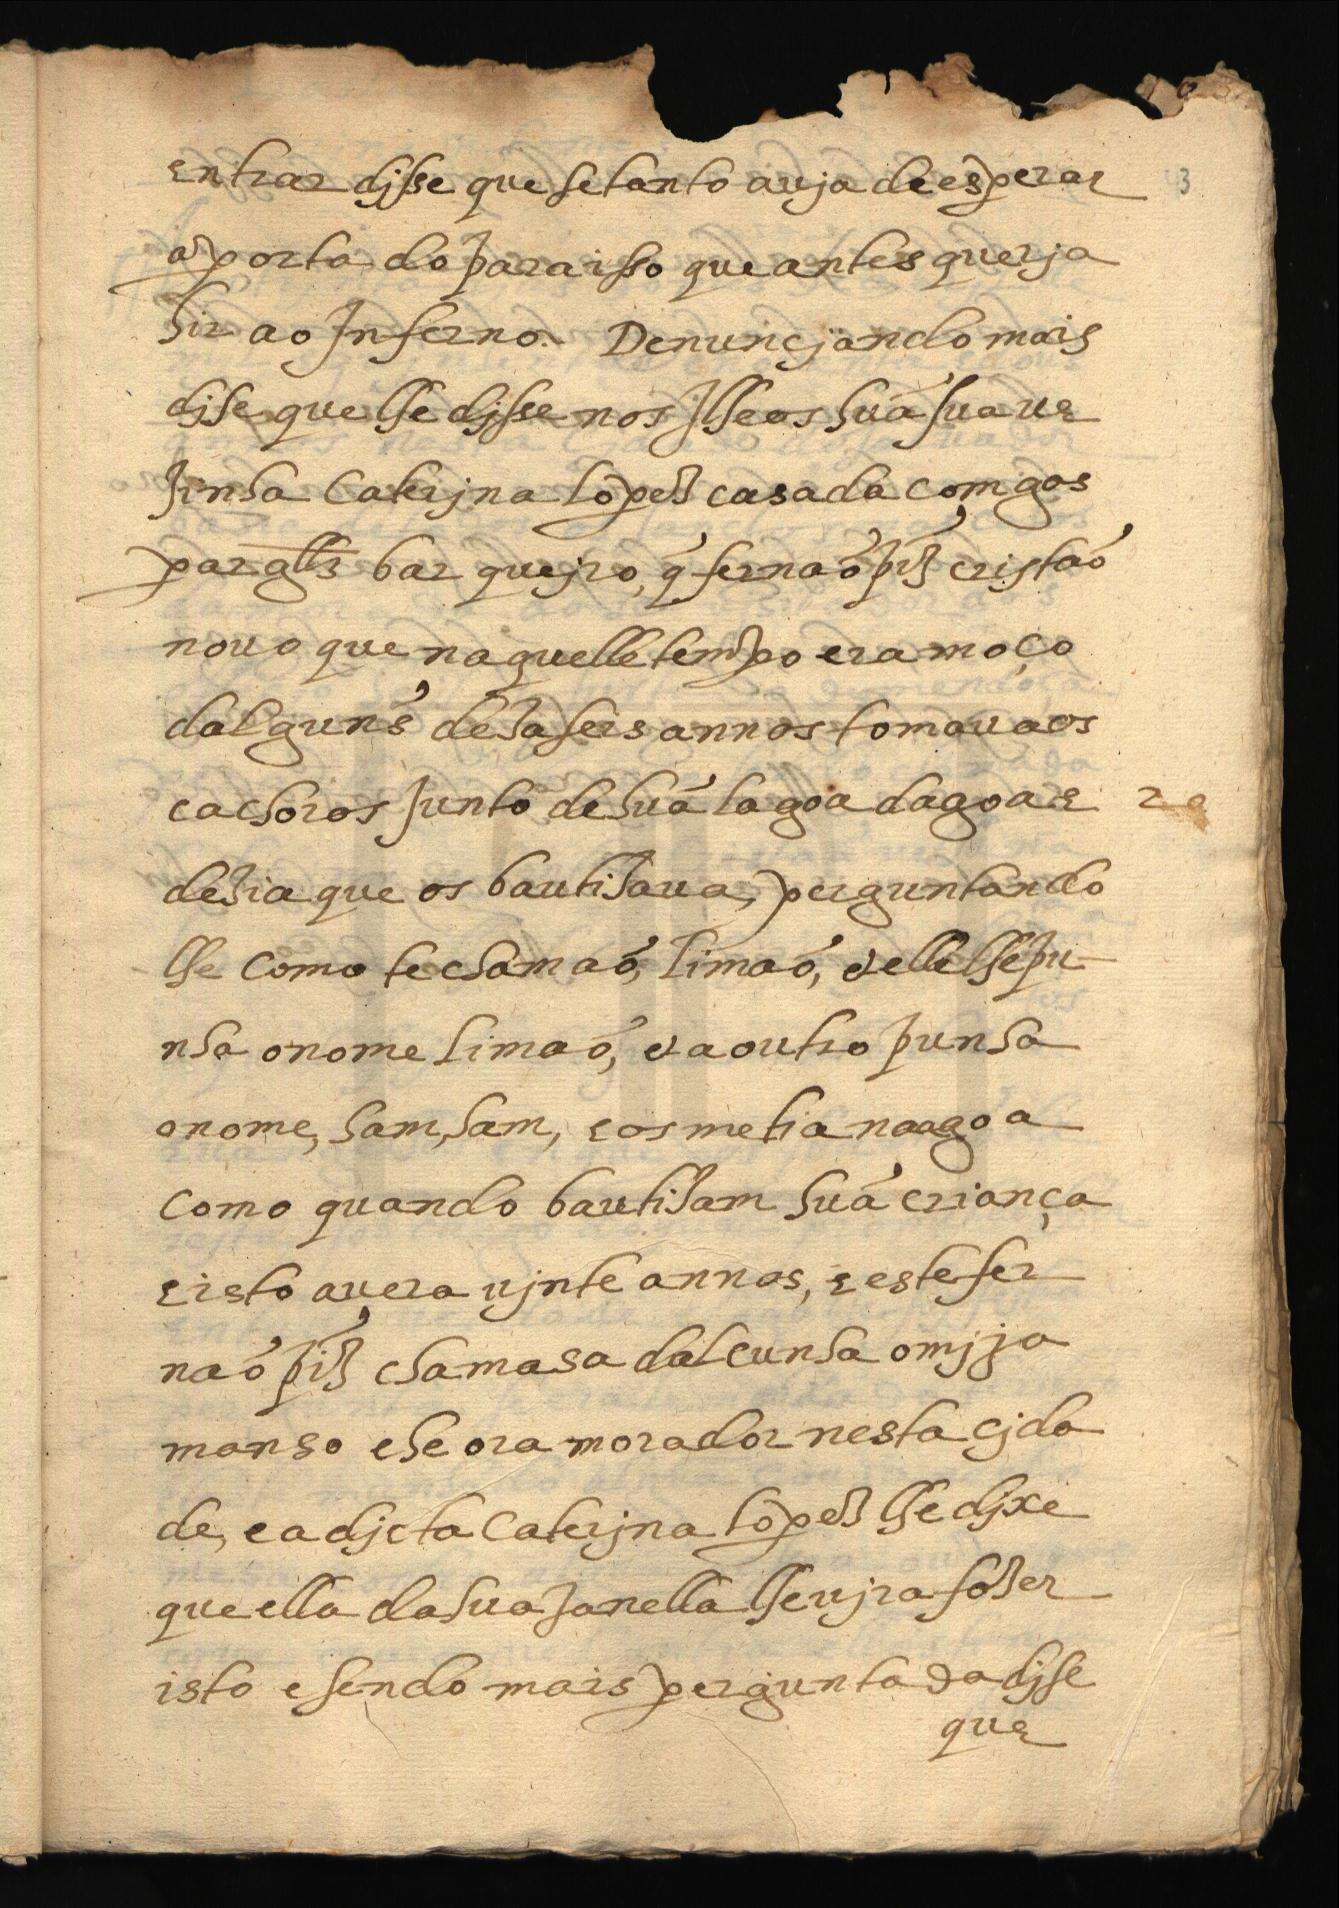 entrar djsse que se tanto auja de esperar
a porta do paraisso que antes querja
hir ao Inferno. Denuncjando mais
djse que lhe djsse nos Ilheos huá sua ve
zinha Caterjna lopez casada com gas
par glz barquejro, q̃ fernaó piz cristaó
nouo que naquelle tempo era moço
dalguns dezaseis annos tomaua os
cachoros junto de huá lagoa dagoa e
dezia que os bautizaua, perguntando
lhe como te chamaó, limaó, e elle lhe pu
nha o nome limaó, e a outro punha
o nome, sam, sam, e os metia na agoa
como quando bautizam huá criança
e isto auera vjnte annos, e este fer
naó piz chamasa dalcunha o mjja
manso e he ora morador nesta cjda
de, e a djcta Caterjna lopez lhe djxe
que ella da sua janella lhe vjra fazer
isto e sendo mais perguntada djse
que